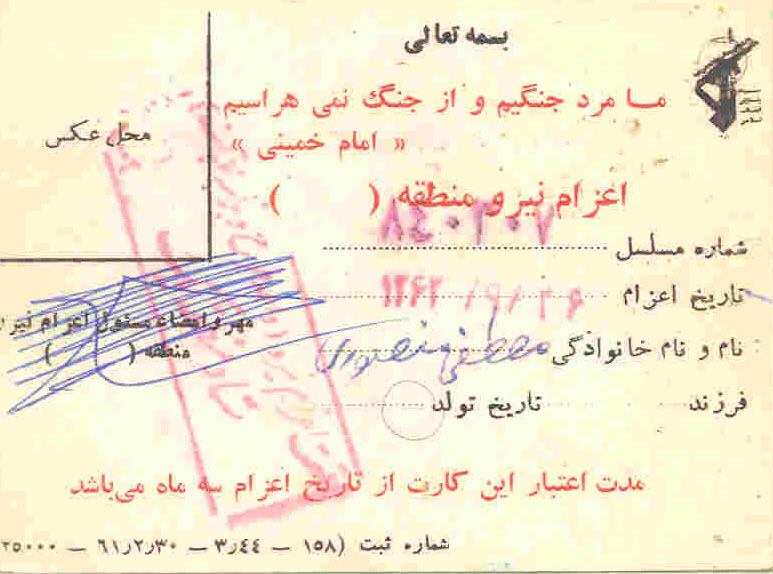 بسمه تعالی
ما مرد جنگیم و از جنگ نمی هراسیم
« امام خمینی »
محل عکس
اعزام نیرو منطقه ( )
شماره مسلسل ۸۴۰۳۰۷
تاریخ اعزام ۱۳۶۲/۹/۲۶
مهر و امضاء مسئول اعزام نیرو
منطقه ( )
نام و نام خانوادگی مصطفی منصوری
فرزند تاریخ تولد
مدت اعتبار این کارت از تاریخ اعزام سه ماه می‌باشد
شماره ثبت (۱۵۸ – ۳٫۴۴ – ۶۱٫۲٫۳۰ – ۲۵۰۰۰